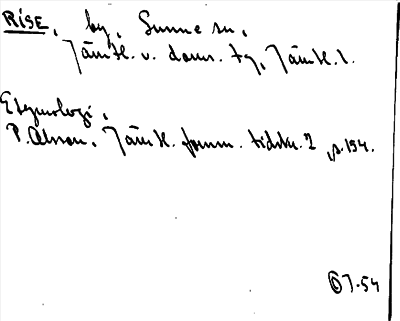 RISE, by, Sunne sn,
Jämtl. v. doms. tg, Jämtl. l.
Etymologi,
P. Olsson, Jämtl. fornm. tidskr. 2, s. 194.
OJ-54